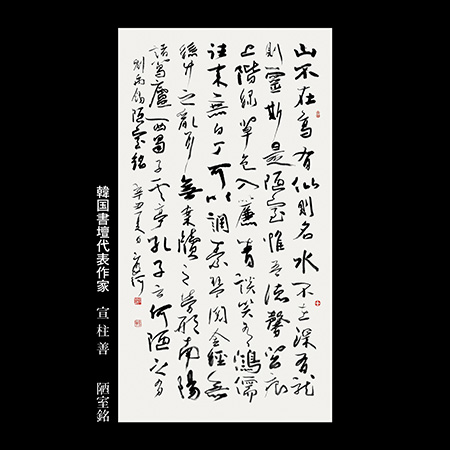 山不在高有仙則名水不在深有龍
則靈斯是陋室惟吾德馨苔痕
上階綠草色入簾青談笑有鴻儒
往來無白丁可以調素琴閱金經無
絲竹之亂耳無案牘之勞形南陽
諸葛廬西蜀子雲亭孔子云何陋之有
劉禹錫陋室銘 辛丑夏日
韓国書壇代表作家 宣柱善 陋室銘